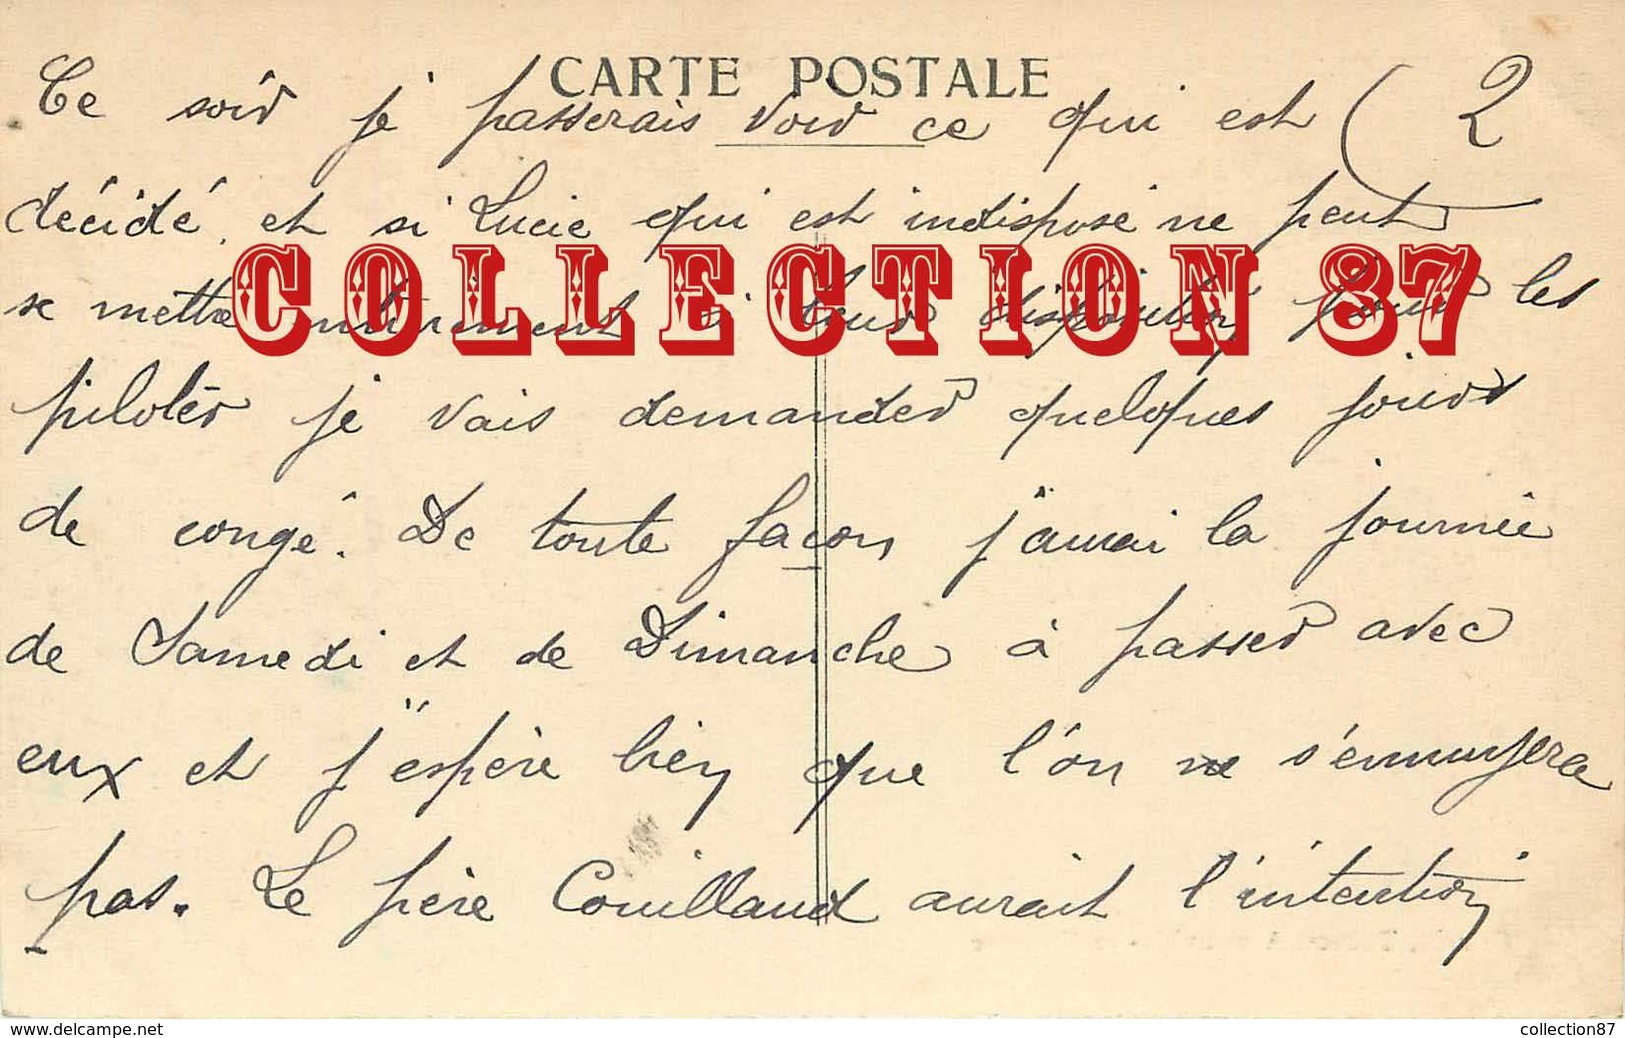 CARTE POSTALE
2
Ce soir je passerais voir ce qui est
décidé et si Lucie qui est indisposé ne peut
se mettre entièrement à leur disposition pour les
piloter je vais demander quelques jours
de congé. De toute façon j'aurai la journée
de Samedi et de Dimanche à passer avec
eux et j'espère bien que l'on ne s'ennuyera
pas. Le père Couillaud aurait l'intention
COLLECTION 87
www.delcampe.net
collection87